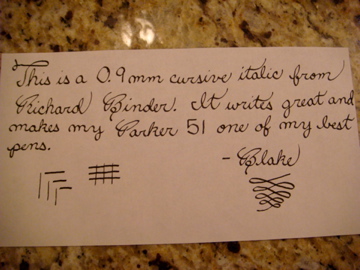 This is a 0.9mm cursive italic from
Richard Binder. It writes great and
makes my Parker 51 one of my best
pens.
- Blake